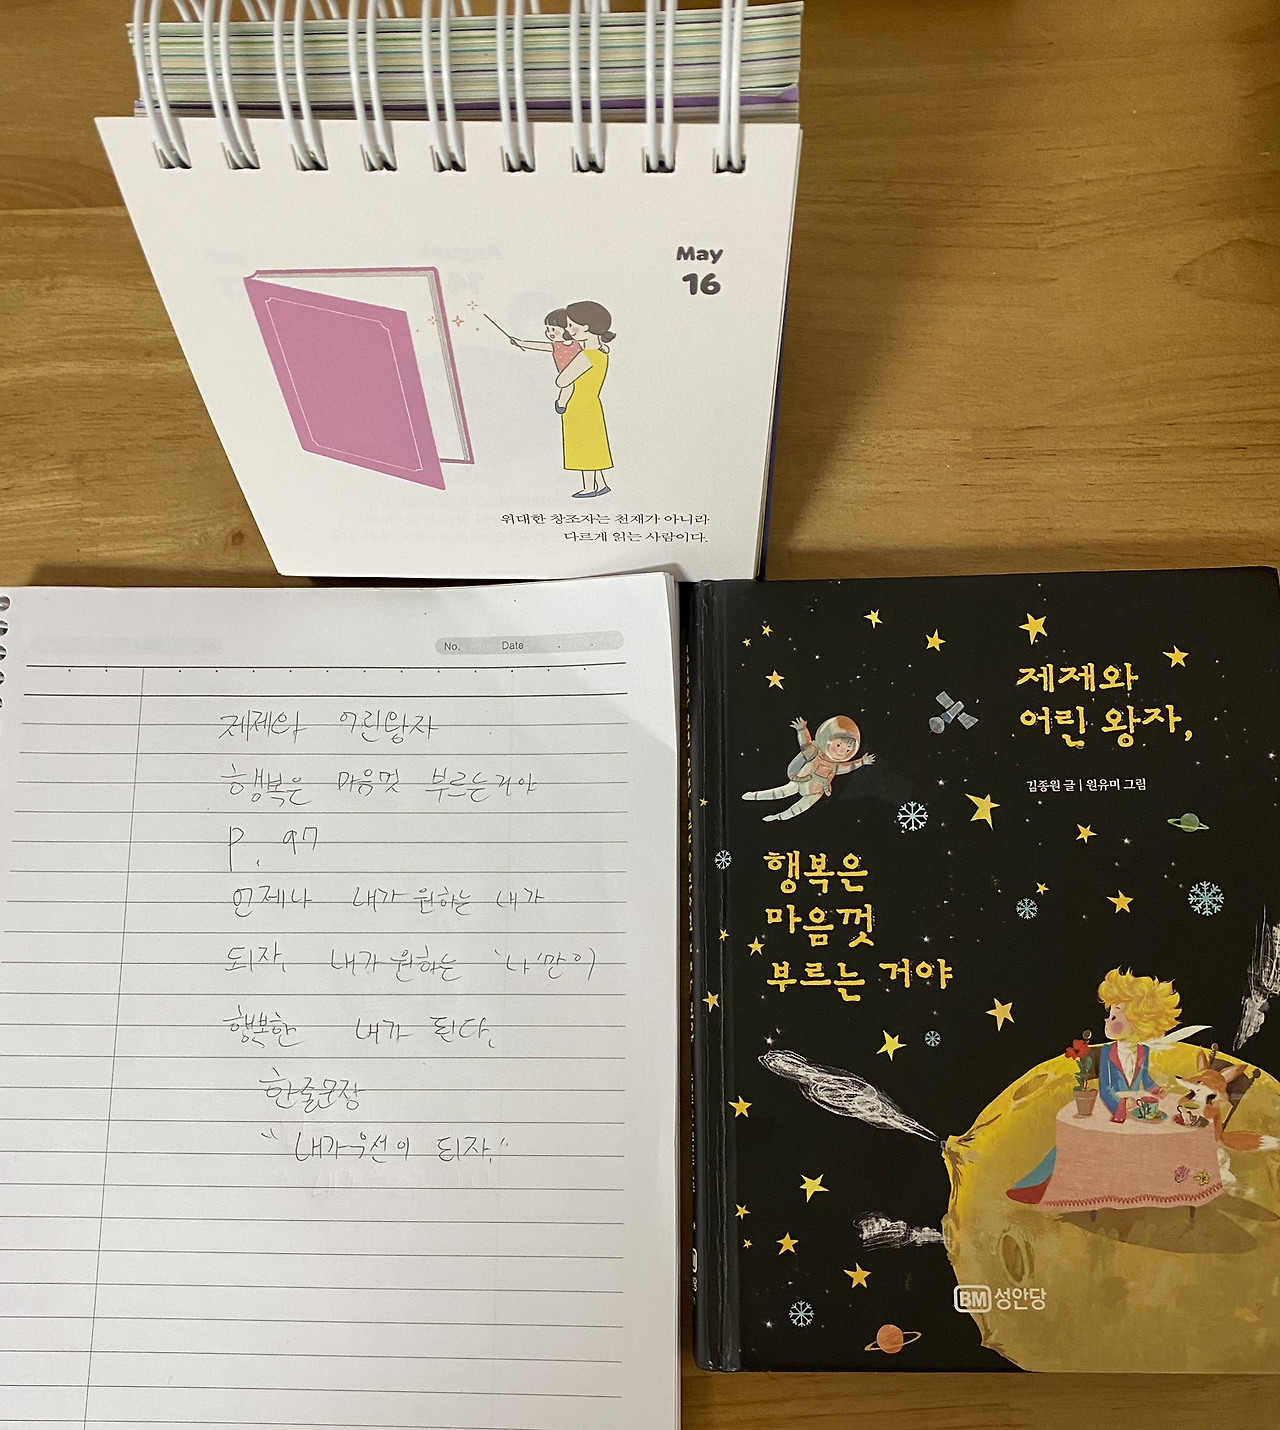 May
16
위대한 창조자는 천재가 아니라
다르게 읽는 사람이다.
No. Date
제제와 어린왕자
행복은 마음멋 부르는거야
P. 97
언제나 내가 원하는 내가
되자. 내가 원하는 '나'만이
행복한 내가 된다.
한줄문장
"내가우선이 되자."
제제와
어린 왕자,
김종원 글 | 원유미 그림
행복은
마음껏
부르는 거야
BM 성안당